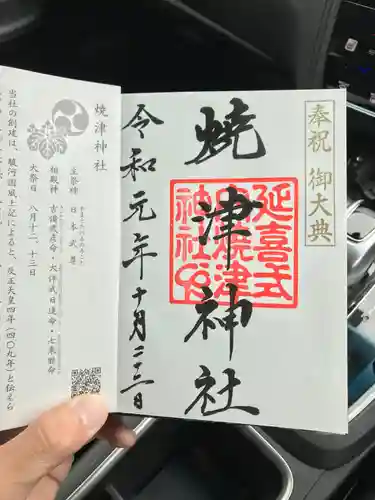 奉祝 御大典
焼津神社
延喜式
内焼津
神社
令和元年十月二十二日
焼津神社
主祭神 日本武尊
相殿神 吉備武彦命・大伴武日連命・七束脛命
大祭日 八月十二、十三日
当社の創建は、駿河国風土記によると、反正天皇四年(四〇九年)と伝えら